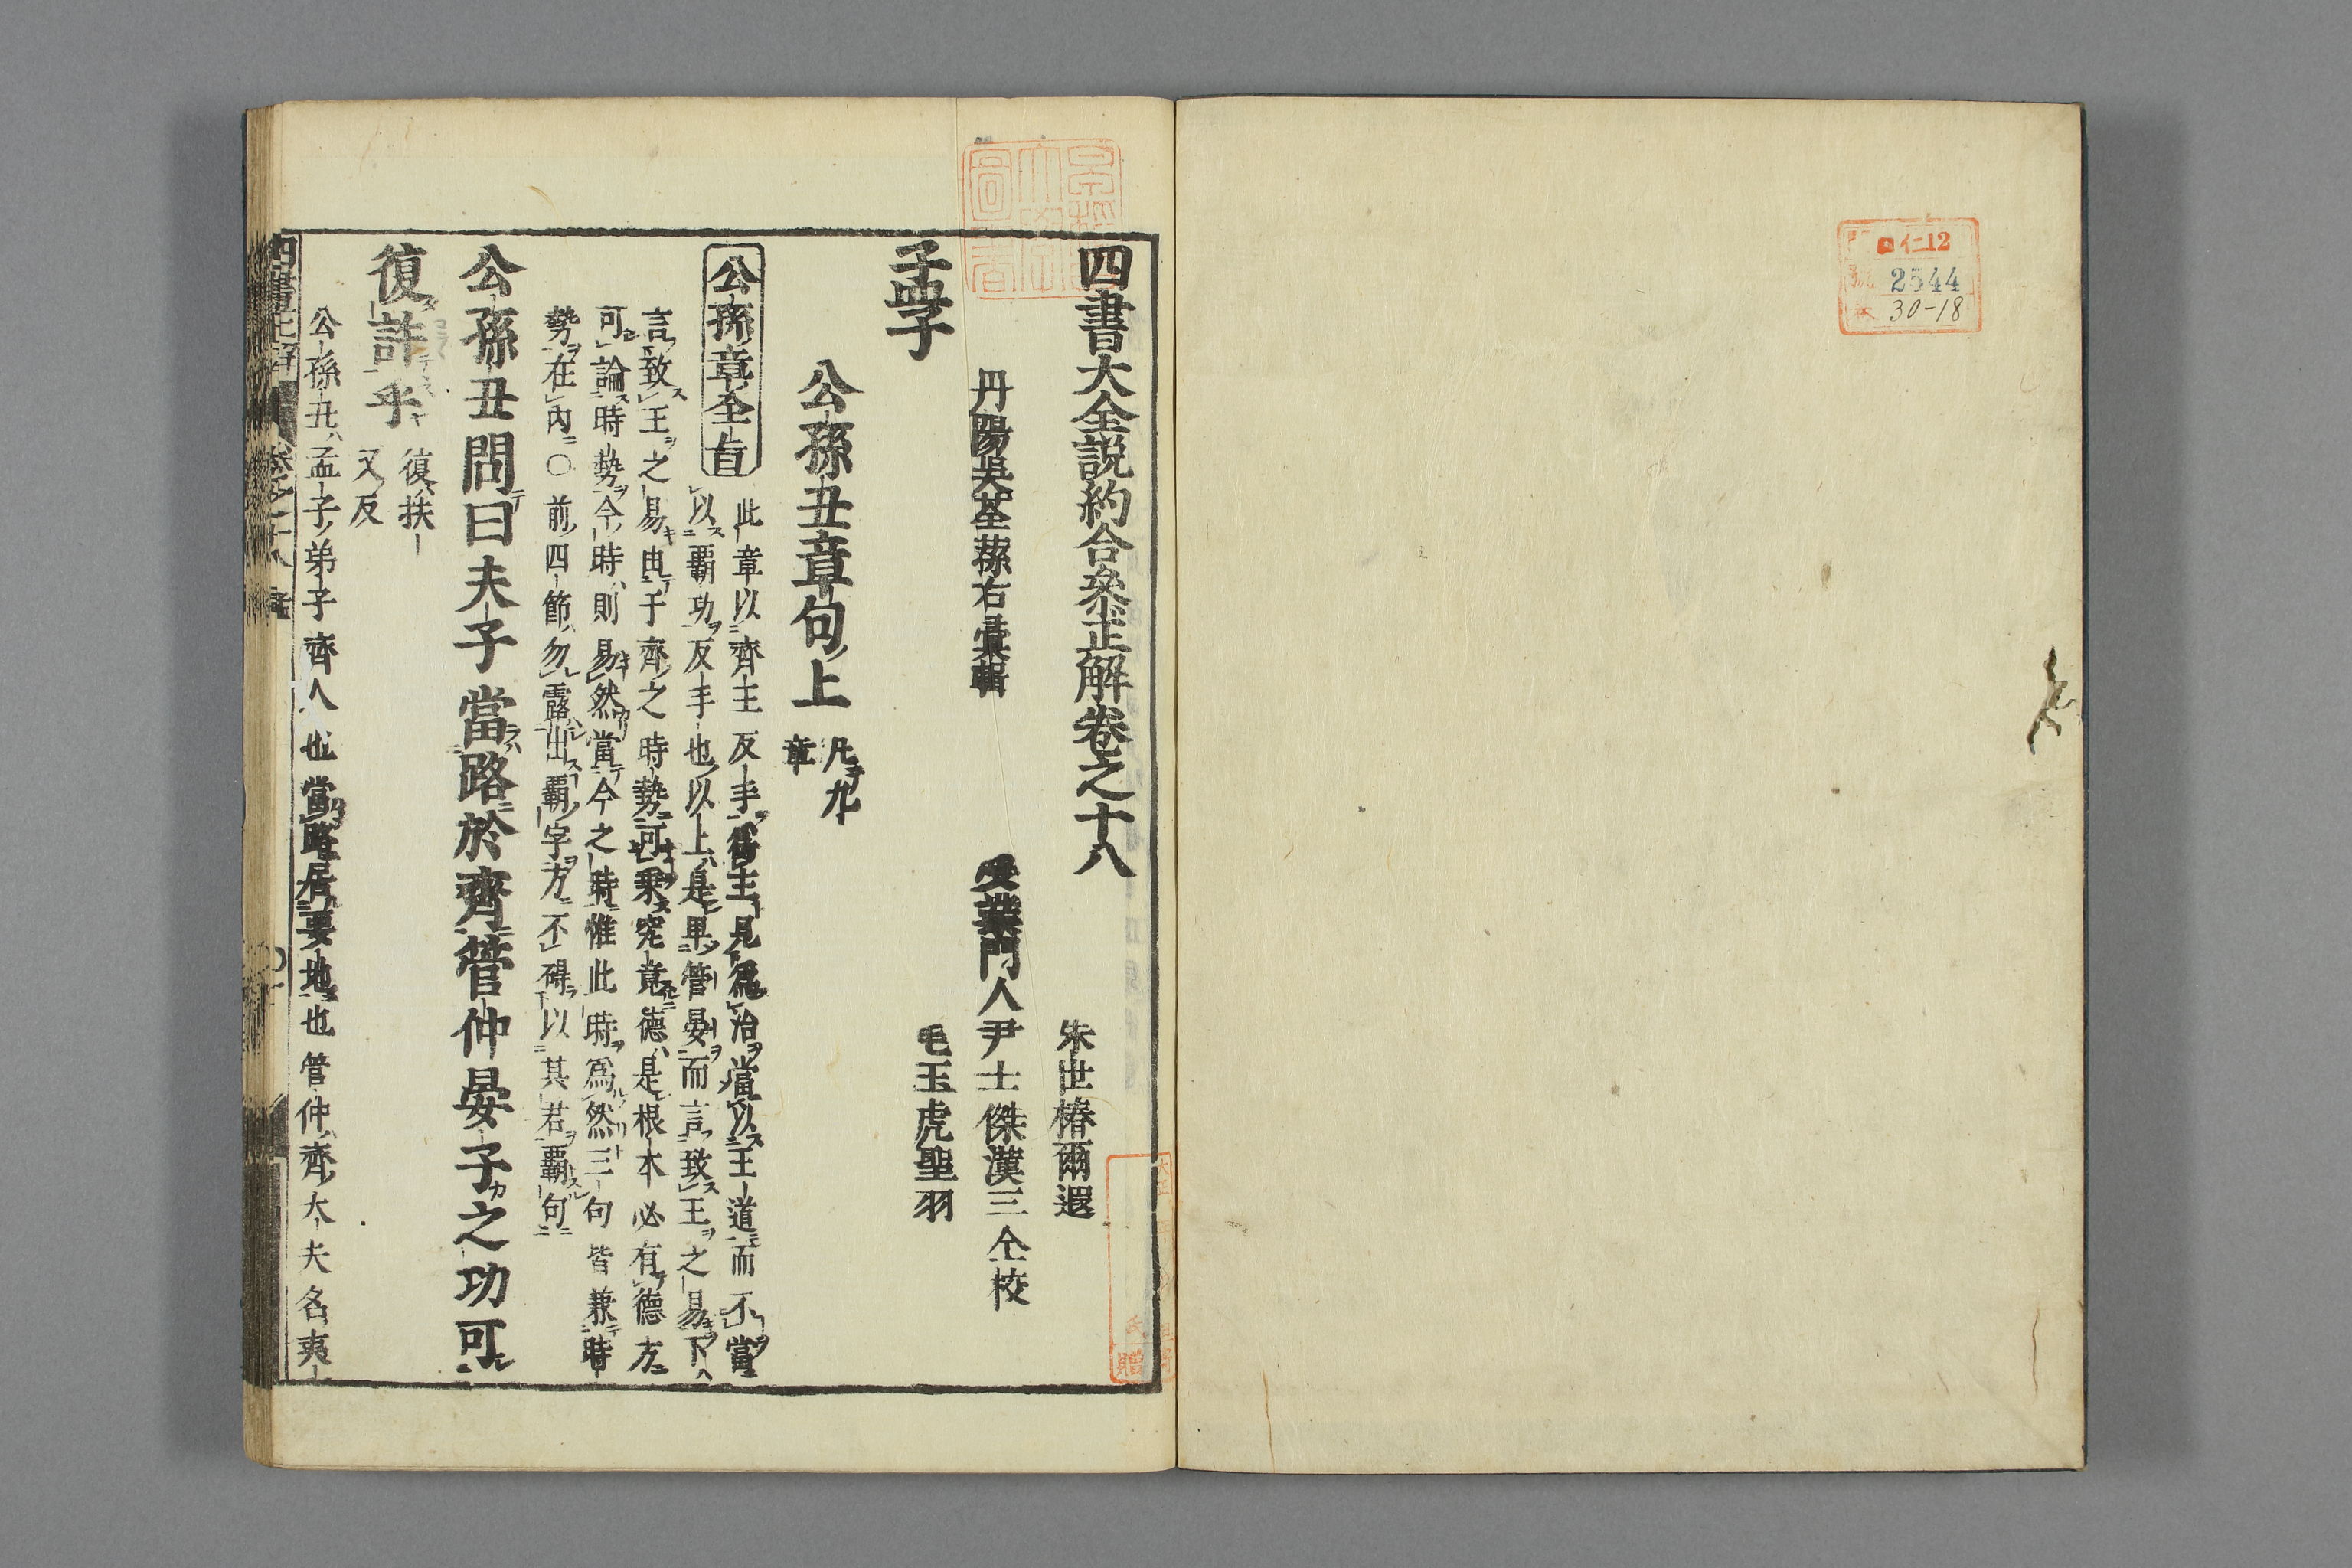 仁12
2544
30-18
四書大全説約合參正解卷之十八
丹陽吳荃蓀右彙輯
朱世椿爾遐
受業門人尹士傑漢三仝校
毛玉虎聖羽
孟子
公孫丑章句上
凡九
章
公孫章全旨
此章以齊王反手為主見為治當以王道而不當
以霸功反手也以上是卑管晏而言致王之易下
言致王之易由于齊之時勢可乘究竟德是根本必有德方
可論時勢今時則易然當今之時惟此時為然三句皆兼時
勢在內〇前四節勿露出霸字方不碍以其君霸句
公孫丑問曰夫子當路於齊管仲晏子之功可
復許乎
復扶
又反
公孫丑孟子弟子齊人也當路居要地也管仲齊大夫名夷
四書正解
卷之十八